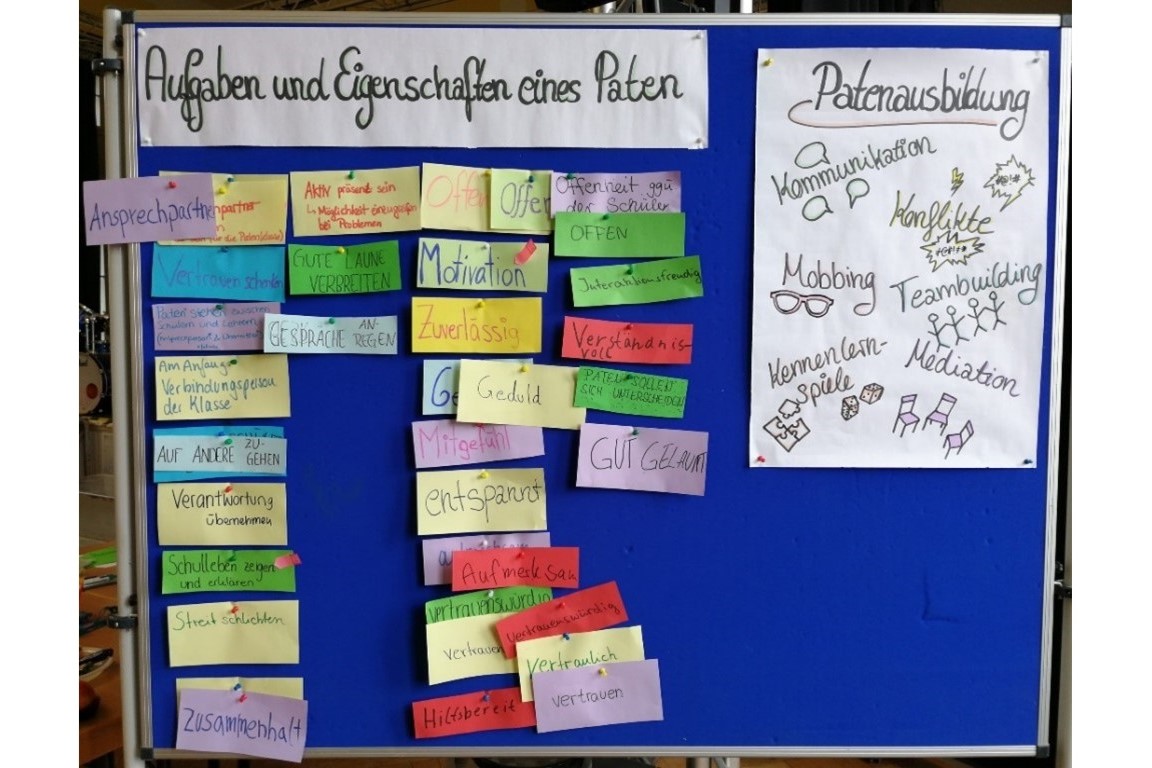 Aufgaben und Eigenschaften eines Paten
Ansprechpartner
npartner
für die Patenklasse)
Vertrauen schenken
Paten stehen zwischen
Schülern und Lehrern
Am Anfang
Verbindungsperson
der Klasse
AUF ANDERE ZU-
GEHEN
Verantwortung
übernehmen
Schulleben zeigen
und erklären
Streit schlichten
Zusammenhalt
Aktiv präsent sein
↳ Möglichkeit einzugreifen
bei Problemen
GUTE LAUNE
VERBREITEN
GESPRÄCHE AN-
REGEN
Offen
Offen
Offenheit ggü
der Schüler
OFFEN
Motivation
Zuverlässig
Ge
Geduld
Mitgefühl
entspannt
Aufmerksam
vertrauenswürdig
vertrauen
vertrauenswürdig
vertraulich
vertrauen
Hilfsbereit
Interaktionsfreudig
Verständnis-
voll
PATEN SOLLEN
SICH UNTERSCHEIDEN
GUT GELAUNT
Patenausbildung
Kommunikation
Konflikte
Mobbing
Teambuilding
Kennenlern-
spiele
Mediation